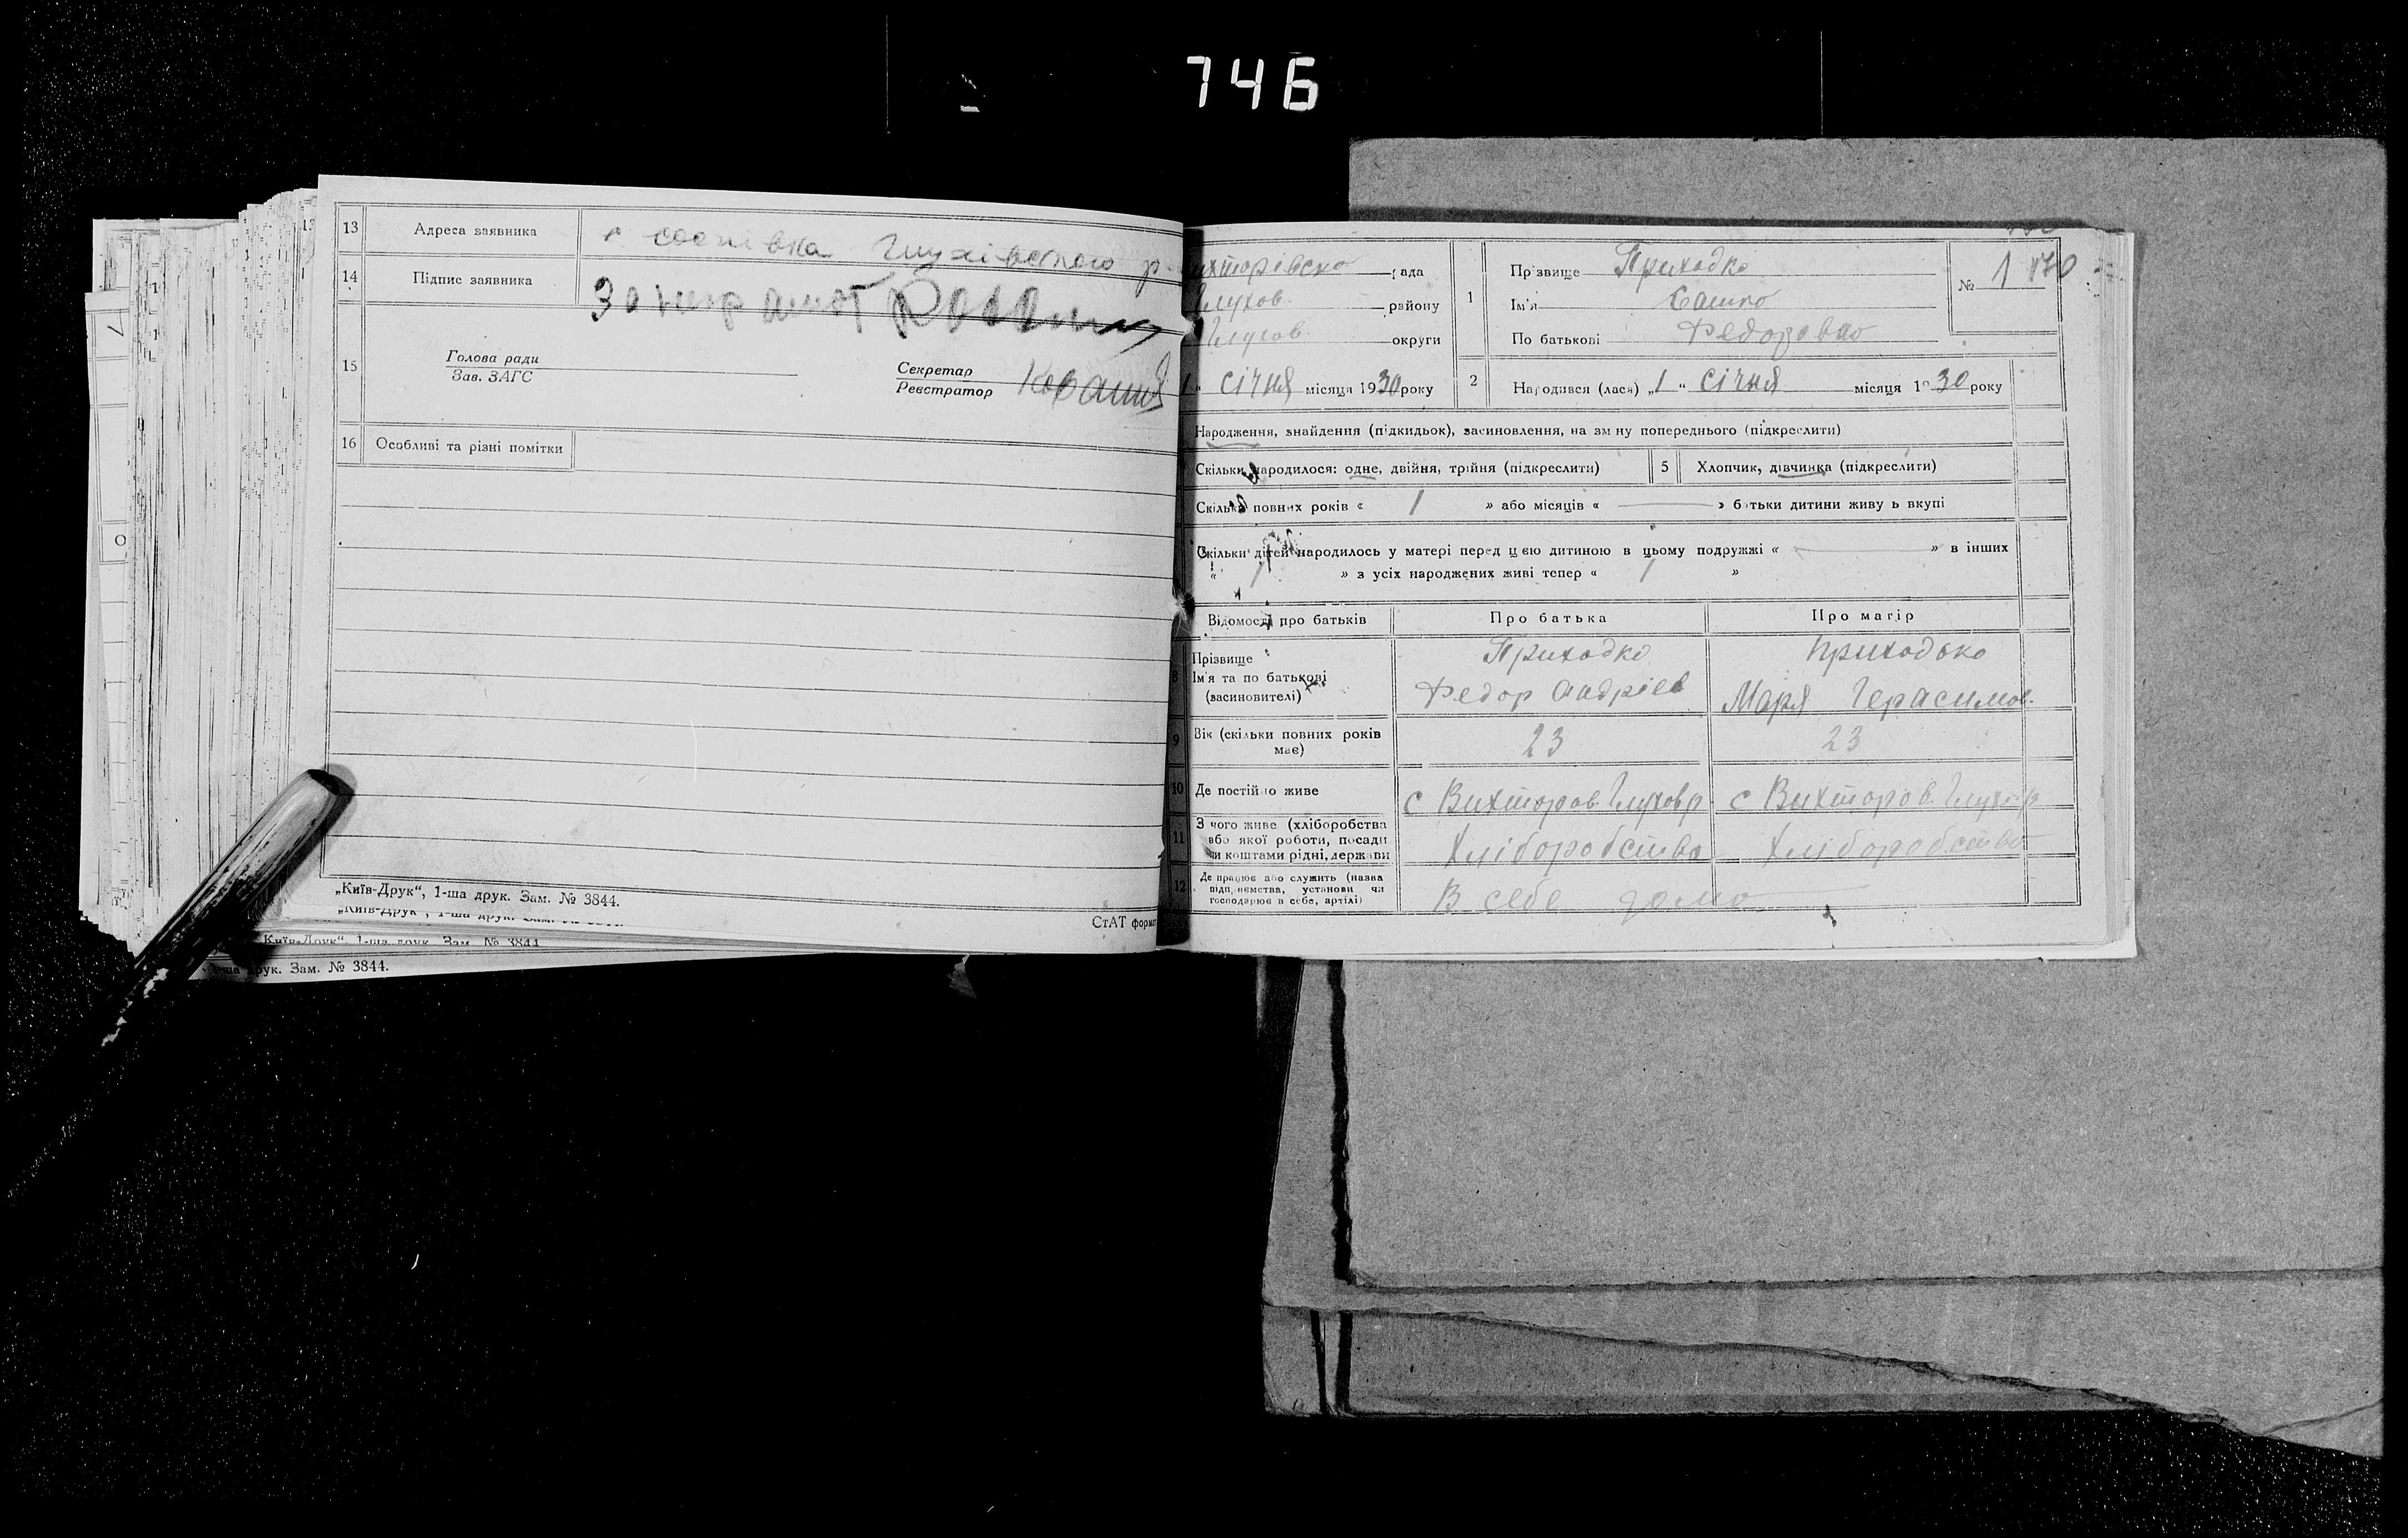 746
13 Адреса заявника с соснівка Глухівського р
14 Підпис заявника За неграмот
15 Голова ради
Зав. ЗАГС
Секретар
Реєстратор
16 Особливі та різні помітки
„Київ-Друк“, 1-ша друк. Зам. № 3844.
СтАТ форма
„Київ-Друк“, 1-ша друк. Зам. № 3844
1-ша друк. Зам. № 3844.
ихторівска рада
Глухов. району
Глухов. округи
1 “ січня місяця 1930 року
1 Прізвище Приходко
Ім'я Сашко
По батькові Федоровна
№ 1 170
2 Народився (лася) „1 “ січня місяця 1930 року
Народження, знайдення (підкидьок), засиновлення, на зміну попереднього (підкреслити)
Скільки народилося: одне, двійня, трійня (підкреслити)
5 Хлопчик, дівчинка (підкреслити)
Скільки повних років « 1 » або місяців « — » батьки дитини живуть вкупі
Скільки дітей народилось у матері перед цією дитиною в цьому подружжі « — » в інших
« 1 » з усіх народжених живі тепер « 1 »
Відомості про батьків Про батька Про матір
8 Прізвище Приходко Приходько
Ім'я та по батькові
(засиновителі) Федор Андріев Маря Герасимов.
9 Вік (скільки повних років
має) 23 23
10 Де постійно живе с Вихторов. Глухов р. с Вихторов. Глухов р
11 З чого живе (хліборобства
або якої роботи, посади
чи коштами рідні, держави Хліборобство Хліборобство
12 Де працює або служить (назва
підприємства, установи чи
господарює в себе, артілі) В себе дома